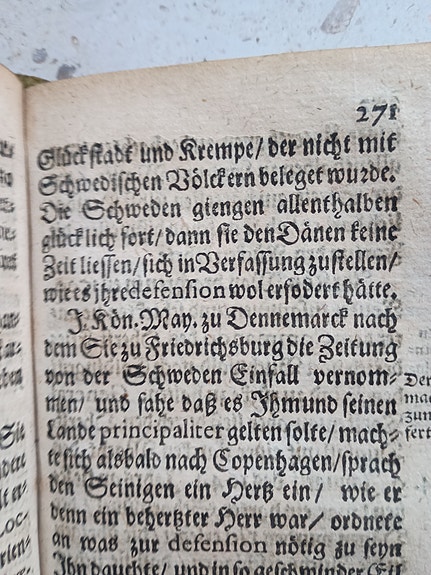 271
Glückstadt und Krempe/ der nicht mit
Schwedischen Völckern beleget wurde.
Die Schweden giengen allenthalben
glücklich fort/ dann sie den Dänen keine
Zeit liessen/ sich in Verfassung zu stellen/
wie es jhre defension wol erfodert hätte.
J. Kön. May. zu Dennemarck nach
dem Sie zu Friedrichsburg die Zeitung
von der Schweden Einfall vernom-
men/ und sahe daß es Jhm und seinen
Lande principaliter gelten solte/ mach-
te sich alsbald nach Copenhagen/ sprach
den Seinigen ein Hertz ein/ wie er
denn ein behertzter Herr war/ ordnete
an was zur defension nötig zu seyn
Jhn dauchte/ und in so geschwinder Eil